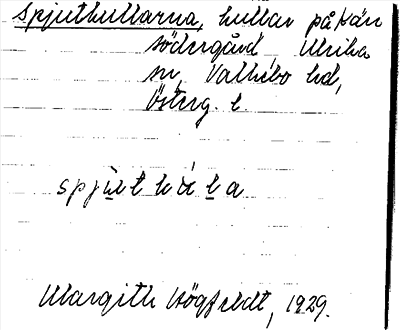 Spjutkullarna, kullar på Hän
södergård, Ulrika
sn, Valkebo hd,
Österg. l.
Margith Högfeldt, 1929.